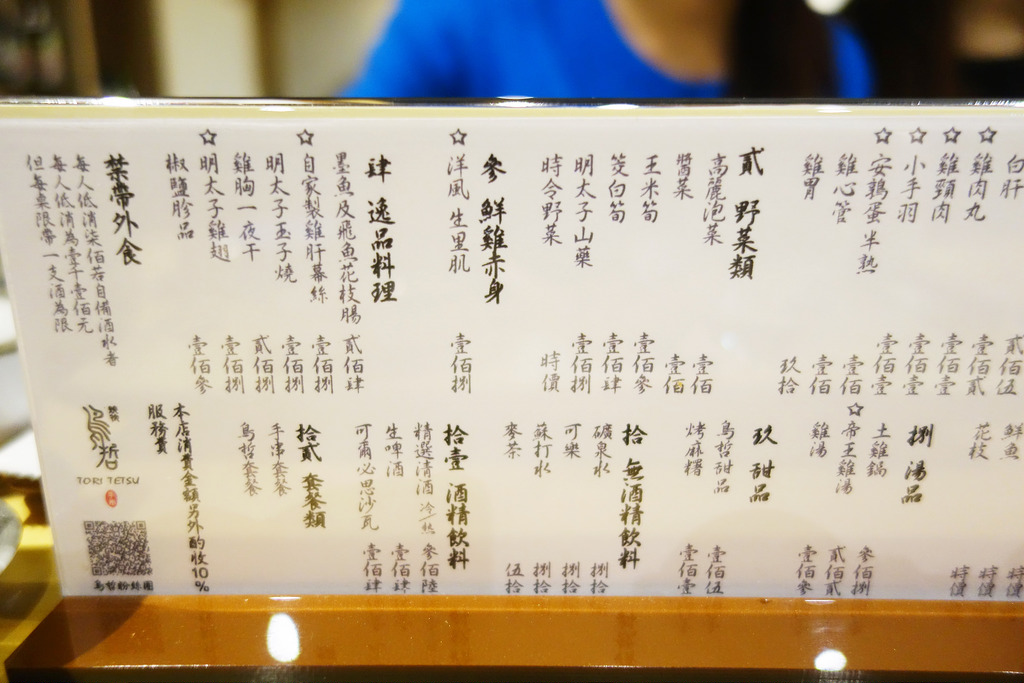 白肝 貳佰伍
☆雞肉丸 壹佰貳
☆雞頸肉 壹佰壹
☆小手羽 壹佰壹
☆安鶉蛋 半熟 壹佰壹
雞心管 壹佰
雞胃 玖拾
貳 野菜類
高麗泡菜 壹佰
醬菜 壹佰
玉米筍 壹佰參
筊白筍 壹佰肆
明太子山藥 壹佰捌
時令野菜 時價
參 鮮雞赤身
☆洋風 生里肌 壹佰捌
肆 逸品料理
墨魚及飛魚花枝腸 貳佰肆
☆自家製雞肝幕絲 壹佰捌
明太子玉子燒 壹佰捌
雞胸一夜干 貳佰捌
☆明太子雞翅 壹佰捌
椒鹽胗品 壹佰參
禁帶外食
每人低消柒佰若自備酒水者
每人低消為壹千壹佰元
但每桌限帶一支酒為限
時價
鮮魚 時價
花枝 時價
捌 湯品
土雞鍋 參佰捌
☆帝王雞湯 貳佰貳
雞湯 壹佰參
玖 甜品
鳥哲甜品 壹佰伍
烤麻糬 壹佰壹
拾 無酒精飲料
礦泉水 捌拾
可樂 捌拾
蘇打水 捌拾
麥茶 伍拾
拾壹 酒精飲料
精選清酒 冷/熱 參佰陸
生啤酒 壹佰肆
可爾必思沙瓦 壹佰肆
拾貳 套餐類
手串套餐
鳥哲套餐
本店消費金額另外酌收10%
服務費
鳥哲
TORI TETSU
鳥哲粉絲團